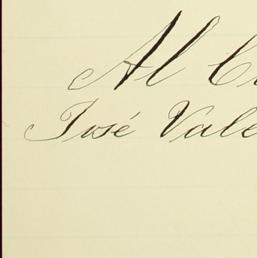 Al C
José Vale